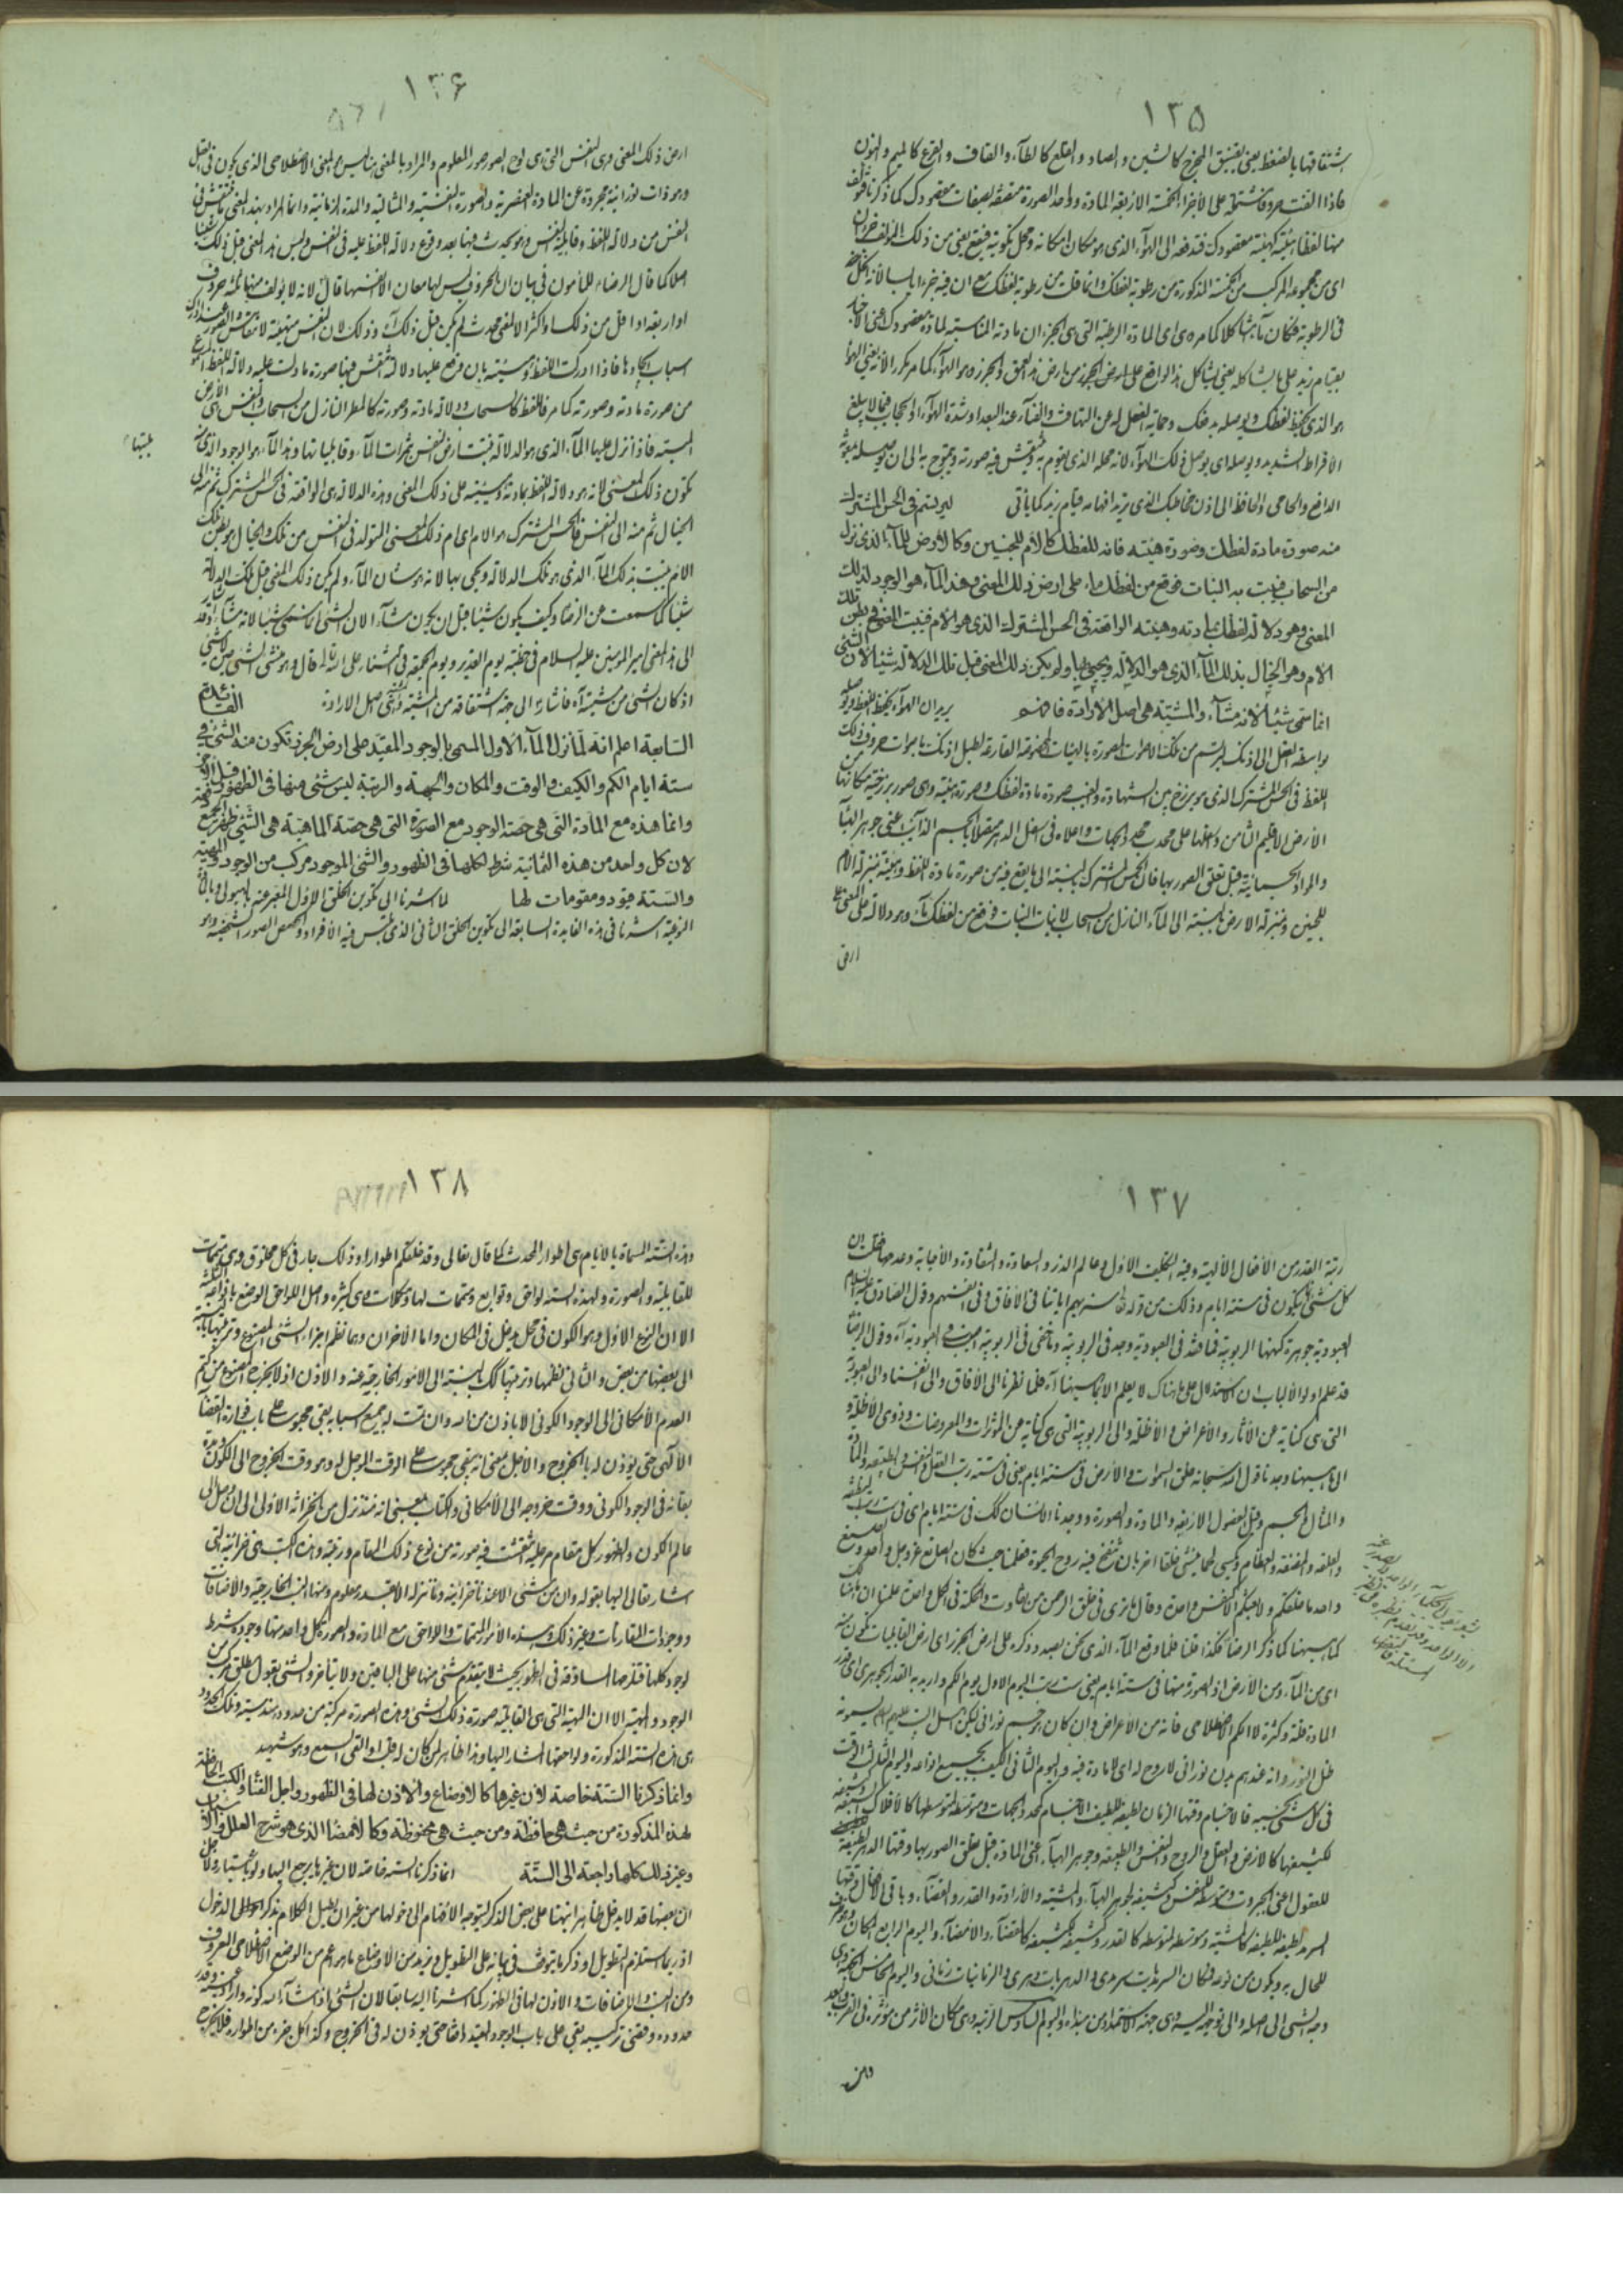 ١٣٥
اشتقاقها بالضغط يعنى بضيق المخرج كالشين والصاد والقلع كالطاء والقاف والقرع كالميم والنون
فاذا الفت حروفا مشتملة على الأجزاء الخمسة الاربعة المادة وواحد الصورة متصفة بصفات مقصودك كما ذكرنا
منها لفظا هيئته كهيئة مقصودك فتدفعه الى الهوآء الذى هو مكان امكانه ومحل تكوينه فيقع يعنى من ذلك المؤلف
اى من مجموعه المركب من الخمسة المذكورة من رطوبة لفظك وانما قلت من رطوبة لفظك مع ان فيه جزءا يابسا لانه
فى الرطوبة فكان مآء مشاكلا كما مر اى المادة الرطبة التى هى الجزءان مادته المناسبة لمادة مقصودك اعنى الاخبار
بقيام زيد على ما يشاكله يعنى يشاكل هذا الواقع على ارض الجرز من ارض هذا العمق والجرز هو الهوآء كما مر مكررا لانه يعنى الهوآء
هو الذى يحفظ لفظك ويوصله بدفعك وحماية الفعل له عن التهافت والفنآء عند البعد او شدة الهوآء او الحجاب فيما لا يبلغ
الافراط الشديد ويوصله اى يوصل ذلك الهوآء لانه محله الذى يقوم به وتنتقش فيه صورته ويتموج به الى ان يوصله بمعونة
الدافع والحامى والحافظ الى اذن مخاطبك الذى تريد افهامه قيام زيد كما يأتى ليرتسم فى الحس المشترك
منه صورة مادة لفظك وصورة هيئته فانه للفظك كالأم للجنين وكالارض للمآء الذى نزل
من السحاب فينبت به النبات فوقع من لفظك مآء على ارض ذلك المعنى وهذا المآء هو الوجود لذلك
المعنى وهو دلالة لفظك بمادته وهيئته الواقعة فى الحس المشترك الذى هو الأم فينبت المعنى فى بطن تلك
الام وهو الخيال بذلك المآء الذى هو الدلالة ويحيى بها ولم يكن ذلك المعنى قبل تلك الدلالة شيئا لان الشئ
انما سمى شيئا لانه مشآء والمشية هى اصل الارادة فافهم يريد ان الهوآء يحفظ اللفظ ويوصله
بواسطة الفعل الى اذنك ليرتسم من تلك الاصوات المصورة بالهيئات المختلفة القارعة لطبل اذنك باصوات حروف ذلك
اللفظ فى الحس المشترك الذى هو برزخ بين الشهادة والغيب صورة مادة لفظك وصورة هيئته وهى صور برزخية مكانها
الأرض الاقليم الثامن وسفلها على محدب محدد الجهات واعلاه فى اسفل الدهر متصلا بالجسم الذائب اعنى جوهر الهبآء
والمواد الجسمانية قبل تعلق الصور بها فان الحس المشترك بالنسبة الى ما يقع فيه من صورة مادة اللفظ وهيئته بمنزلة الام
للجنين وبمنزلة الارض بالنسبة الى المآء النازل من السحاب لانبات النبات فوقع من لفظك مآء وهو دلالة على المعنى على
ارض
١٣٦
ارض ذلك المعنى وهى النفس التى هى لوح الصور صور المعلوم والمراد بالمعنى هنا ليس المعنى الاصطلاحى الذى يكون فى العقل
وهو ذات نورانية مجردة عن المادة العنصرية والصورة النفسية والمثالية والمدة الزمانية وانما المراد بهذا المعنى ما ينتقش فى
النفس من دلالة اللفظ وقابلية النفس وهو يحدث فيها بعد وقوع دلالة اللفظ عليه فى النفس وليس هذا المعنى قبل ذلك شيئا
اصلا كما قال الرضا للمأمون فى بيان ان الحروف ليس لها معان الا نفسها قال لانه لا يؤلف منها ثلثة حروف
او اربعة او اقل من ذلك او اكثر الا لمعنى محدث لم يكن قبل ذلك آه وذلك لان النفس متهيئة لانتقاش الصور عند ادراك
اسباب ايجادها فاذا ادركت اللفظ وهيئته بان وقع عليها دلالته انتقش فيها صورة ما دلت عليه دلالة اللفظ
من صورة مادته وصورته كما مر فاللفظ كالسحاب ودلالة مادته وصورته كالمطر النازل من السحاب والنفس هى الأرض
الميتة فاذا نزل عليها المآء الذى هو الدلالة فنبتت ارض النفس بثمرات المآء وقابلياتها وهذا المآء هو الوجود الذى
تكون ذلك المعنى لانه هو دلالة اللفظ بمادته وهيئته على ذلك المعنى وهذه الدلالة هى الواقعة فى الحس المشترك ثم منه الى
الخيال ثم منه الى النفس فالحس المشترك هو الام اى ام ذلك المعنى المتولد فى النفس من تلك والخيال هو بطن تلك
الام ينبت بذلك المآء الذى هو تلك الدلالة ويحيى بها لانه هو شان المآء ولم يكن ذلك المعنى قبل تلك الدلالة
شيئا كما سمعت من الرضا وكيف يكون شيئا قبل ان يكون مشآء لان الشئ انما سمى شيئا لانه مشآء وقد
الى هذا المعنى امير المؤمنين عليه السلام فى خطبته يوم الغدير ويوم الجمعة فى الثناء على الله قال وهو منشئ الشئ حين لا شئ
اذ كان الشئ من مشيته آه فاشار الى جهة اشتقاقه من المشية وهى اصل الارادة الفائدة
السابعة اعلم انه لما نزل المآء الاول المسمى بالوجود المقيد على ارض الجرز تكون منه الشئ فى
ستة ايام الكم والكيف والوقت والمكان والجهة والرتبة ليس شئ منها فى الظهور قبل الآخر
وانما هذه مع المادة التى هى حصة الوجود مع الصورة التى هى حصة الماهية هى الشئ ظهر الجميع دفعة
لان كل واحد من هذه الثمانية شرط لكلها فى الظهور والشئ الموجود مركب من الوجود والمهية
والستة قيود ومقومات لها لما اشرنا الى تكوين الخلق الاول المعبر عنه بالهيولى وبالمآء
النوعية اشرنا فى هذه الفايدة السابعة الى تكوين الخلق الثانى الذى تلبس فيه الأفراد والحصص الصور الشخصية وهو
١٣٧
رتبة القدر من الأفعال الألهية وفيه التكليف الاول وعالم الذر والسعادة والشقاوة والأجابة وعدمها فقلت ان
كل شئ يتكون فى ستة ايام وذلك من قوله تعالى سنريهم اياتنا فى الآفاق وفى انفسهم وقول الصادق عليه السلام
العبودية جوهرة كنهها الربوبية فما فقد فى العبودية وجد فى الربوبية وما خفى فى الربوبية اصيب فى العبودية آه وقول الرضا
قد علم اولوا الألباب ان الاستدلال على ما هناك لا يعلم الا بما هيهنا آه فلما نظرنا الى الآفاق والى انفسنا والى العبودية
التى هى كناية عن الآثار والأعراض والأظلة والى الربوبية التى هى كناية عن المؤثرات والمعروضات وذوى الأظلة
الى ما هيهنا وجدنا قول الله سبحانه خلق السموات والأرض فى ستة ايام يعنى فى ستة رتب العقل والنفس والطبيعة والمادة
والمثال والجسم وقيل الفصول الاربعة والمادة والصورة ووجدنا الانسان كذلك فى ستة ايام اى فى ست رتب النطفة
والعلقة والمضغة والعظام وكسى لحما ينشئ خلقا اخر بان تنفخ فيه روح الحيوة فعلمنا حيث كان الصانع عز وجل واحدا والصنع
واحد ما خلقكم ولا بعثكم الا كنفس واحدة وقال ما ترى فى خلق الرحمن من تفاوت والحكمة فى الكل واحدة علمنا ان ما هناك
كما هيهنا كما ذكر الرضا فلذا قلنا فلما وقع المآء الذى نحن بصدد ذكره على ارض الجرز اى ارض القابليات تكون منه
اى من المآء ومن الأرض اذ الصورة منها فى ستة ايام يعنى ست رتب اليوم الاول يوم الكم واريد به القدر الجوهرى اى قدر
المادة قلة وكثرة لا الكم الاصطلاحى فانه من الأعراض وان كان هو جسم نورانى لكن اهل البيت عليهم السلام يسمونه
ظل النور وانه عندهم بدن نورانى لا روح له اى لا مادة فيه واليوم الثانى الكيف بجميع انواعه واليوم الثالث الوقت
فى كل شئ بحسبه فالاجسام وقتها الزمان لطيفه للطيف الاجسام كمحدد الجهات ومتوسطه لمتوسطها كالأفلاك السبعة وكثيفه
لكثيفها كالارض والعقل والروح والنفس والطبيعة وجوهر الهبآء اعنى المادة قبل تعلق الصور بها وقتها الدهر لطيفه
للعقول اعنى الجبروت ومتوسطه للنفس وكثيفه لجوهر الهبآء والمشية والأرادة والقدر والقضآء وباقى الافعال وقتها
السرمد لطيفه للطيفه كالمشية ومتوسطه لمتوسطه كالقدر وكثيفه لكثيفه كالقضآء والامضآء واليوم الرابع المكان وهو ظرف
للحال به ويكون من نوعه فمكان السرمديات سرمدى والدهريات دهرى والزمانيات زمانى واليوم الخامس الجهة وهى
وجه الشئ الى اصله والى توجهه اليه وهى جهة الاستمداد من مبدئه واليوم السادس الرتبة وهى مكان الأثر من مؤثره فى القرب والبعد
وهذه
١٣٨
وهذه الستة المسماة بالايام هى اطوار المحدث كما قال تعالى وقد خلقكم اطوارا وذلك جار فى كل مخلوق وهى متممات
للقابلية والصورة ولهذه الستة لواحق وتوابع ومتممات لها ومكملات وهى كثيرة واصل اللواحق الوضع بانواعه الثلثة
الا ان النوع الاول وهو الكون فى محل يدخل فى المكان واما الأخران وهما نظم اجزاء الشئ المصنوع وترتيبها بالنسبة
الى بعضها من بعض والثانى نظمها وترتيبها كذلك بالنسبة الى الأمور الخارجية عنه والاذن اذ لا يخرج المصنوع من كتم
العدم الأمكانى الى الوجود الكونى الا باذن من الله وان تمت له جميع اسبابه بقى محبوسا على باب فوارة القضاء
الألهى حتى يؤذن له بالخروج والأجل بمعنى انه يبقى محبوسا على الوقت المؤجل له وهو وقت الخروج الى الكون ومدة
بقائه فى الوجود الكونى ووقت خروجه الى الأمكانى والكتاب بمعنى انه منذ تنزل من الخزانة الاولى الى ان وصل الى
عالم الكون والظهور كل مقام مر عليه انتقشت فيه صورته من نوع ذلك العالم ورتبته وهذه الكتب هى خزائنه التى
اشار تعالى اليها بقوله وان من شئ الا عندنا خزائنه وما ننزله الا بقدر معلوم ومنها النسب الخارجية والأضافات
ووجودات المقارنات وغير ذلك وهذه الأمور المتممات واللواحق مع المادة والصورة كل واحد منها وجوده شرط
لوجود كلها فتلزمها المساوقة فى الظهور بحيث لا يتقدم شئ منها على الباقين ولا يتأخر والشئ بقول مطلق مركب من
الوجود والمهية الا ان المهية التى هى القابلية صورة ذلك الشئ وهذه الصورة مركبة من حدود هندسية وتلك الحدود
هى هذه الستة المذكورة ولواحقها المشار اليها وهذا ظاهر لمن كان له قلب او القى السمع وهو شهيد
وانما ذكرنا الستة خاصة لان غيرها كالاوضاع والاذن لها فى الظهور واجل الفنآء والكتب الحافظة
لهذه المذكورة من حيث هى حافظة ومن حيث هى محفوظة وكالامضآ الذى هو شرح العلل والاسباب
وغير ذلك كلها راجعة الى الستة انما ذكرنا الستة خاصة لان غيرها يرجع اليها ولو باعتبار ولاجل
ان بعضها قد لا يدخل ظاهرا نبهنا على بعض الذكر ليتوجه الافهام الى دخولها من غير ان نطيل الكلام بذكر احوال الدخول
اذ ربما استلزم التطويل او ذكر ما يتوقف فى بيانه على التطويل ونريد من الاوضاع ما هو اعم من الوضع الاصطلاحى المعروف
ومن النسب والاضافات والاذن لها فى الظهور كما اشرنا اليه سابقا لان الشئ اذا شآء الله كونه واراد عينه وقدر
حدوده وقضى تركيبه بقى على باب الوجود المقيد واقفا حتى يؤذن له فى الخروج وكذا كل جزء من اطواره فلا يخرج